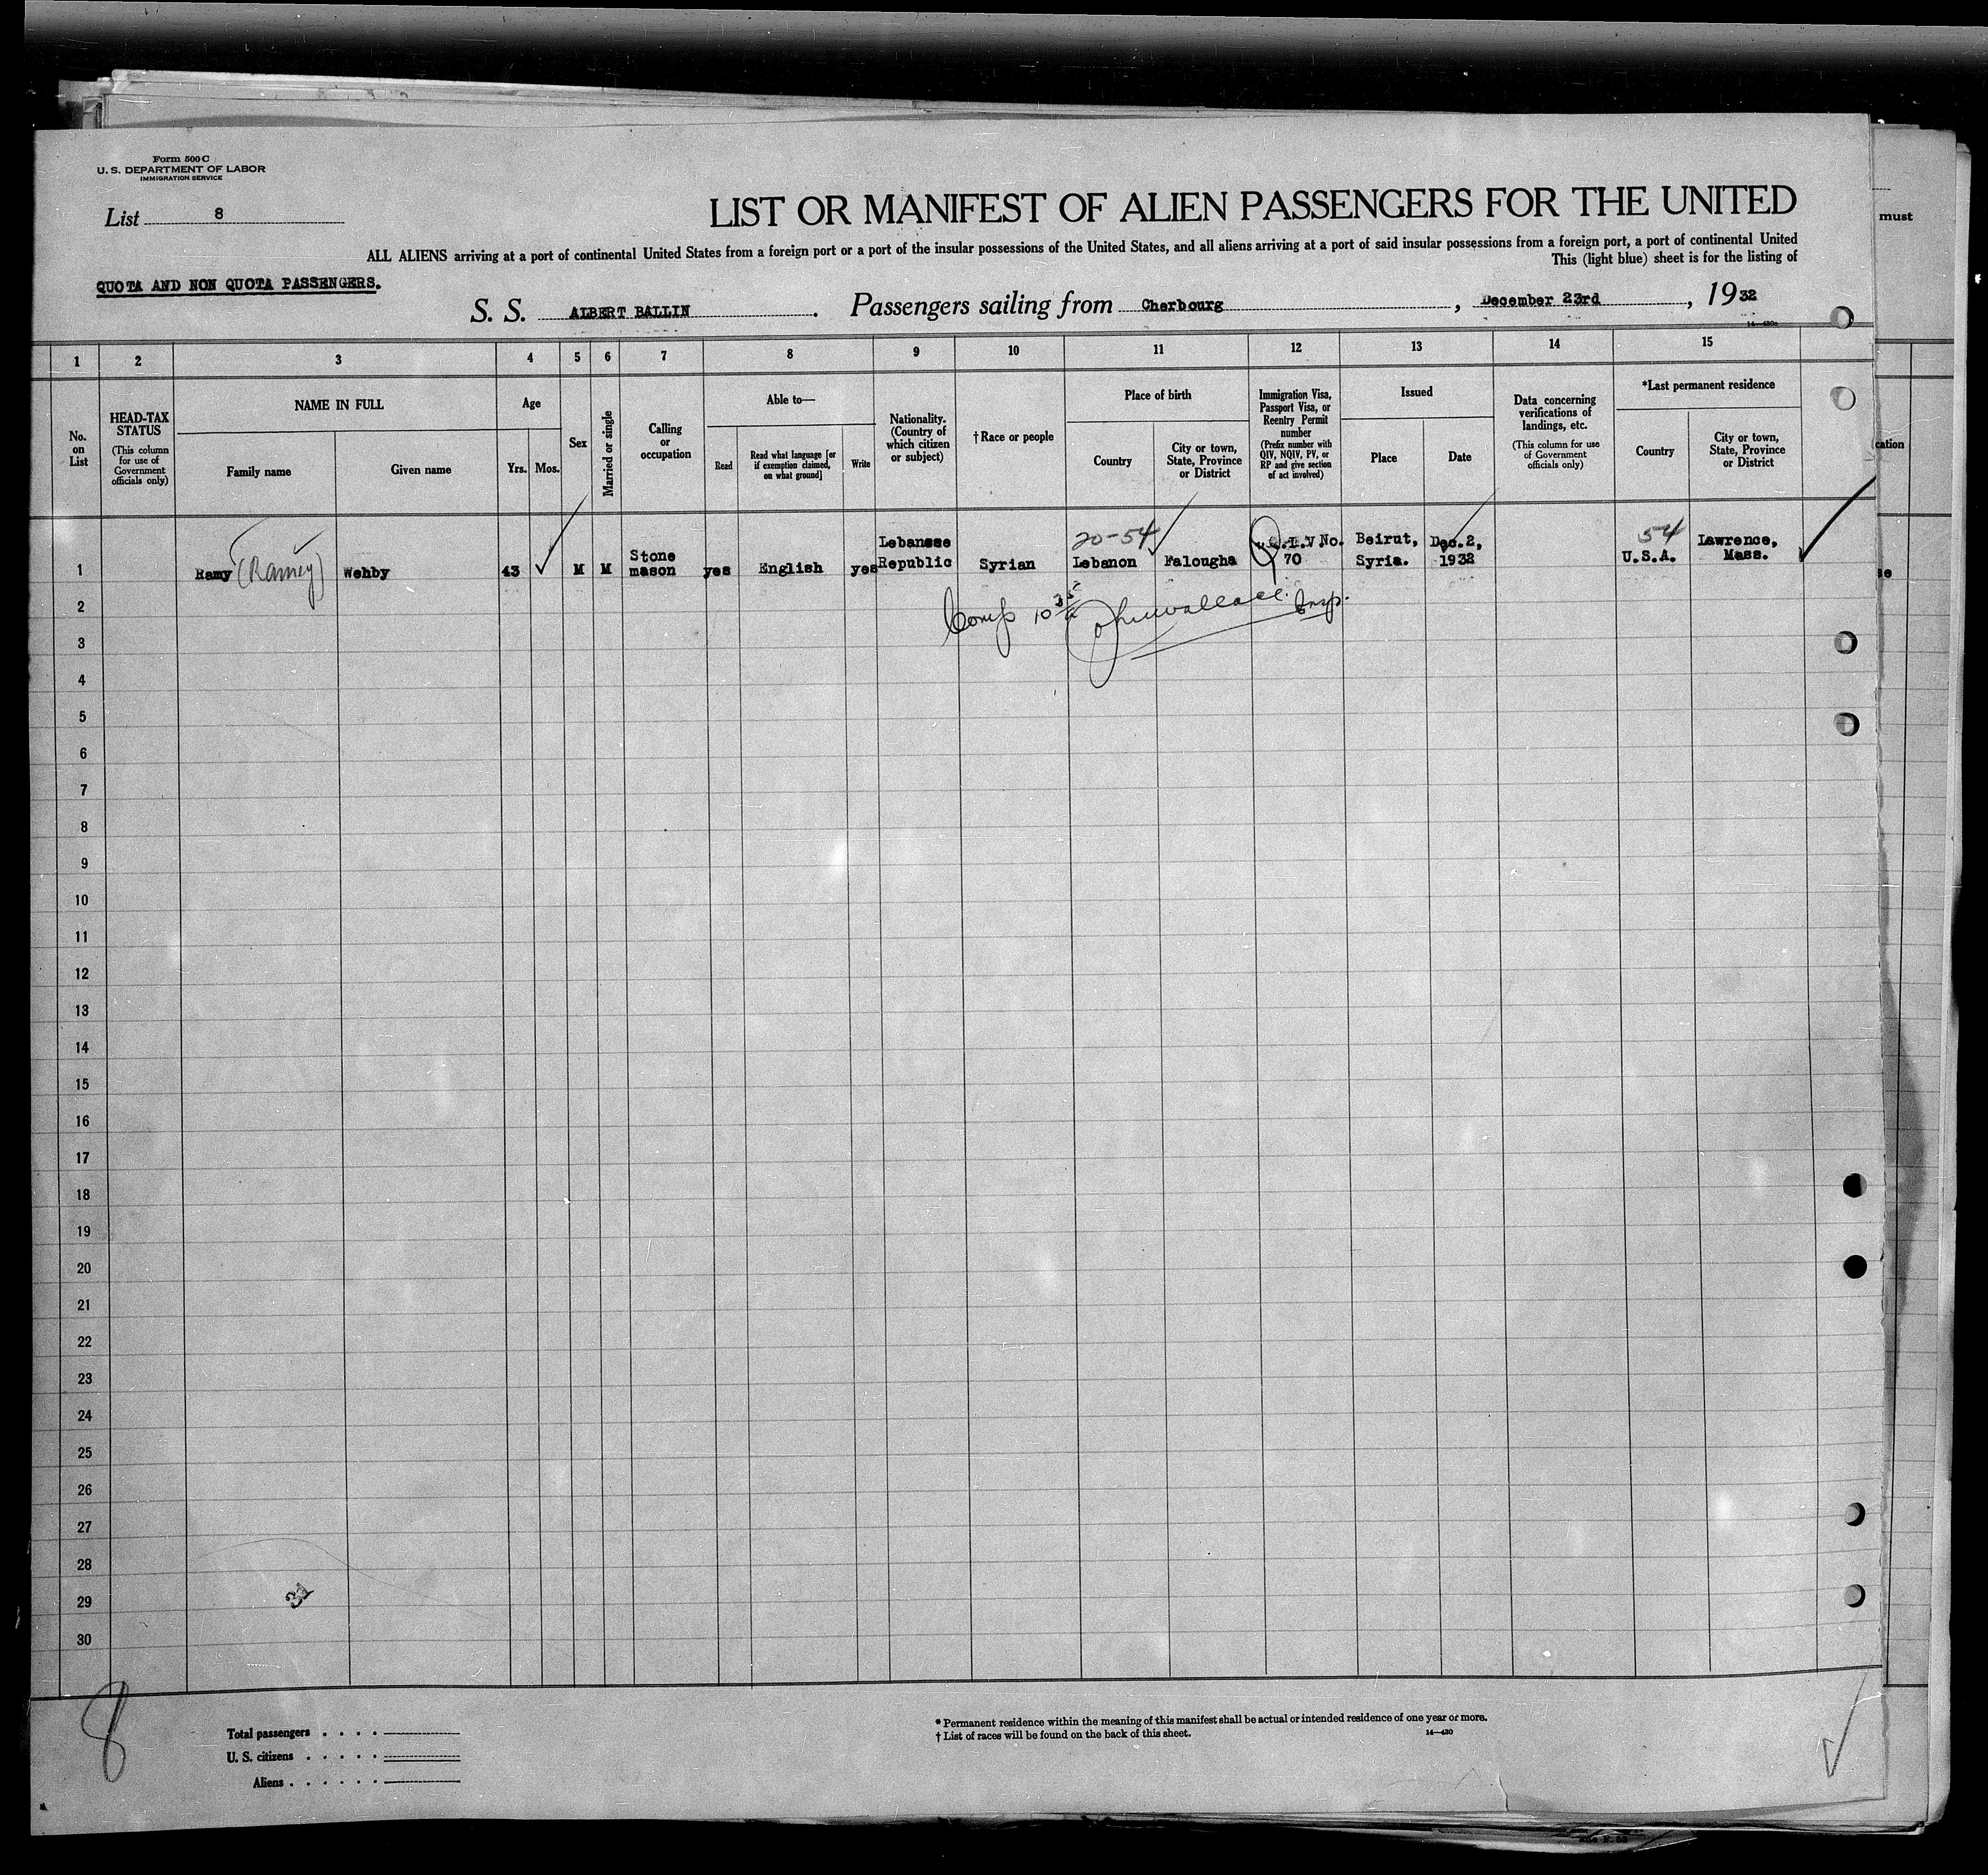 Form 500 C
U. S. DEPARTMENT OF LABOR
IMMIGRATION SERVICE
List 8
LIST OR MANIFEST OF ALIEN PASSENGERS FOR THE UNITED
must
ALL ALIENS arriving at a port of continental United States from a foreign port or a port of the insular possessions of the United States, and all aliens arriving at a port of said insular possessions from a foreign port, a port of continental United
This (light blue) sheet is for the listing of
QUOTA AND NON QUOTA PASSENGERS.
S. S. ALBERT BALLIN. Passengers sailing from Cherbourg, December 23rd, 1932
1 2 3 4 5 6 7 8 9 10 11 12 13 14 15
No. on List
HEAD-TAX STATUS
(This column for use of Government officials only)
NAME IN FULL
Family name
Given name
Age
Yrs. Mos.
Sex
Married or single
Calling or occupation
Able to—
Read
Read what language [or if exemption claimed, on what ground]
Write
Nationality. (Country of which citizen or subject)
† Race or people
Place of birth
Country
City or town, State, Province or District
Immigration Visa, Passport Visa, or Reentry Permit number
(Prefix number with QIV, NQIV, PV, or RP and give section of act involved)
Issued
Place
Date
Data concerning verifications of landings, etc.
(This column for use of Government officials only)
*Last permanent residence
Country
City or town, State, Province or District
cation
1 Ramy (Ramey) Wehby 43 M M Stone mason yes English yes Lebanese Republic Syrian 20-54 Lebanon Falougha Q.I.V No. 70 Beirut, Syria. Dec. 2, 1932 54 U.S.A. Lawrence, Mass.
2
3
4
5
6
7
8
9
10
11
12
13
14
15
16
17
18
19
20
21
22
23
24
25
26
27
28
29
30
31
8
Total passengers . . . .
U. S. citizens . . . . .
Aliens . . . . . .
* Permanent residence within the meaning of this manifest shall be actual or intended residence of one year or more.
† List of races will be found on the back of this sheet.
14—430